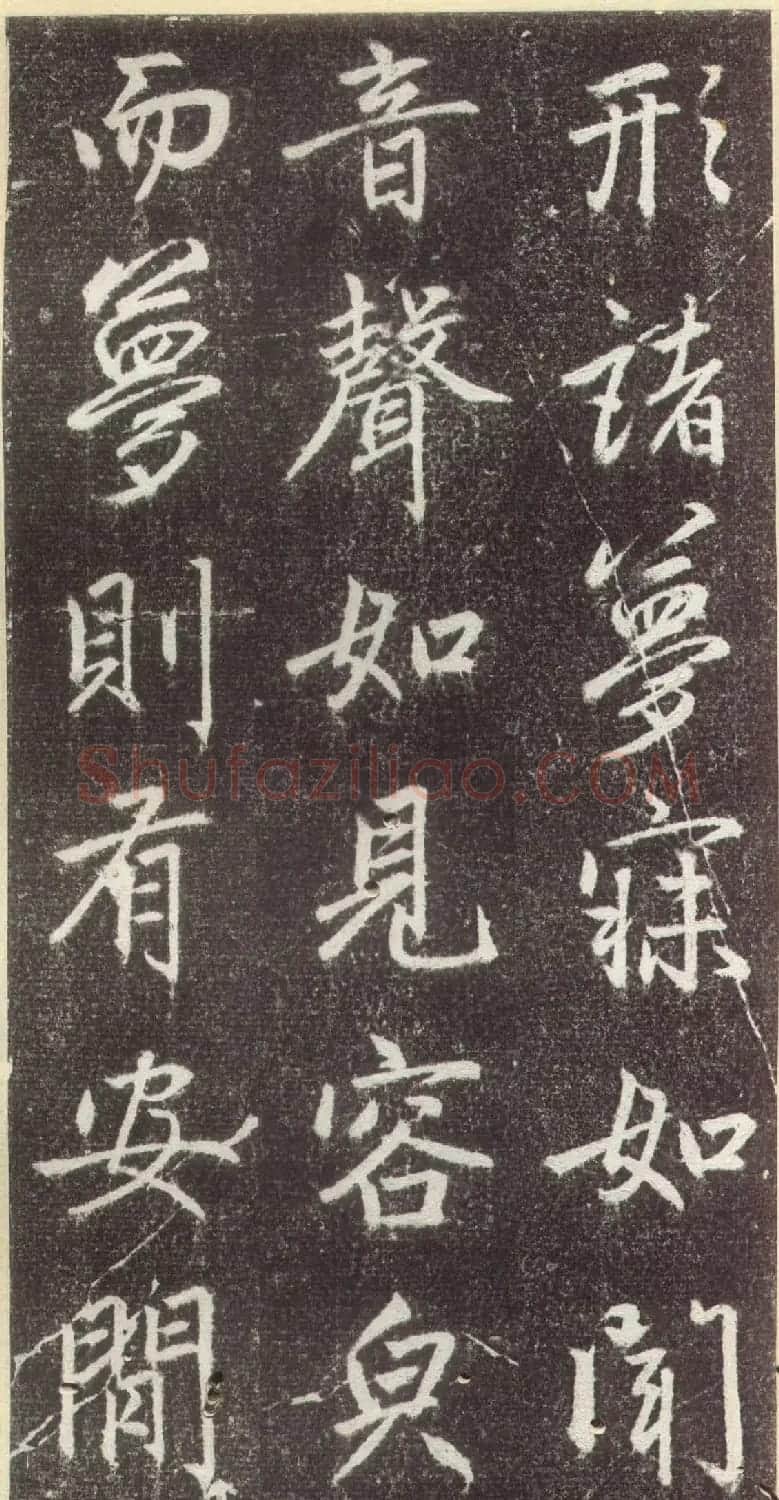 形諸夢寐如聞
音聲如見容皃
而夢則有安閒
Shufaziliao.COM